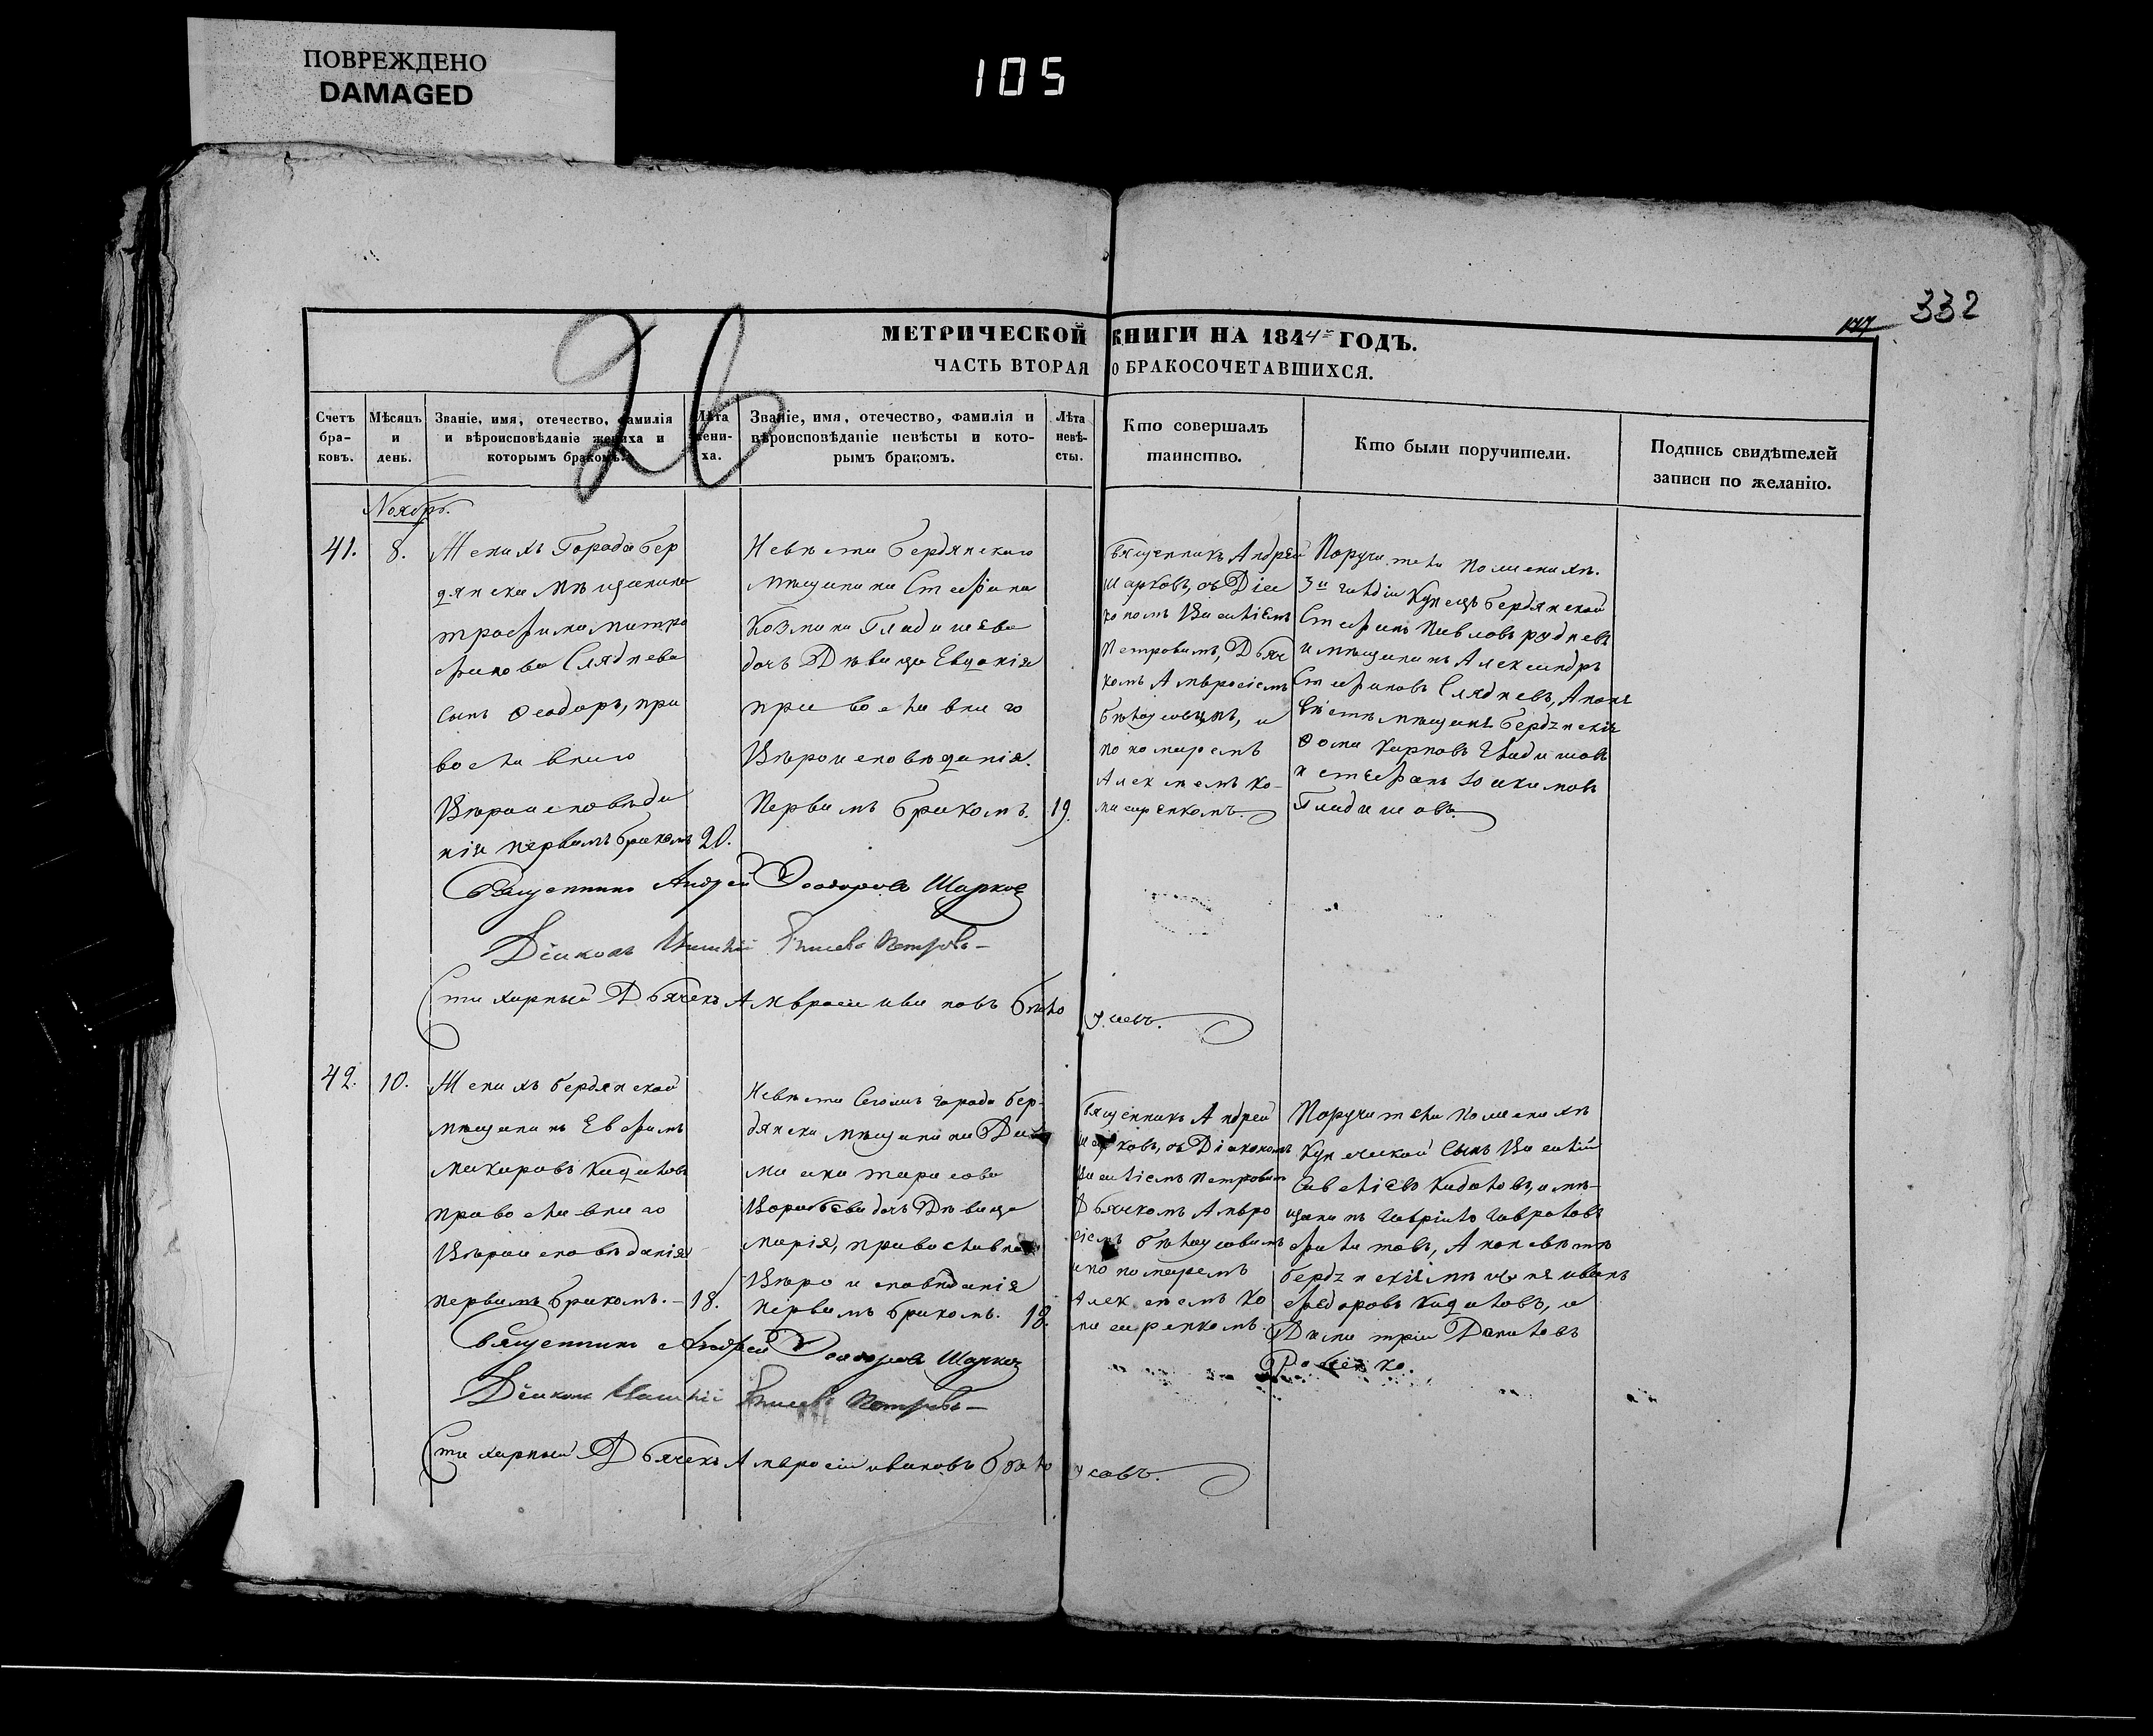 ПОВРЕЖДЕНО
DAMAGED
105
332
26
МЕТРИЧЕСКОЙ КНИГИ НА 1844й ГОДЪ.
ЧАСТЬ ВТОРАЯ О БРАКОСОЧЕТАВШИХСЯ.
Счетъ бра-ковъ.
Мѣсяцъ и день.
Званіе, имя, отечество, фамилія
и вѣроисповѣданіе жениха и
которымъ бракомъ.
Лѣта жени-ха.
Званіе, имя, отечество, фамилія и
вѣроисповѣданіе невѣсты и кото-
рымъ бракомъ.
Лѣта невѣ-сты.
Кто совершалъ
таинство.
Кто были поручители.
Подпись свидѣтелей
записи по желанію.
Ноябрь.
41.
8.
Женихъ Города бер
дянска мѣщанина
трофима митро
фанова Сляднева
сынъ Ѳеодоръ, пра
вославнаго
Вѣроисповѣда
нія первымъ бракомъ
20.
Невѣста бердянскаго
мѣщанина Стефана
Козмина Гладишева
дочь Дѣвица Евдокія
православнаго
Вѣроисповѣданія.
Первымъ бракомъ.
19.
Священникъ Андрей
Шарковъ, съ Діа
кономъ Василіемъ
Петровымъ, Дьяч
комъ Амвросіемъ
бѣлоусовымъ, и
пономаремъ
Алексѣемъ Ко-
Поручители по женихѣ.
3й гилдіи Купецъ бердянской
Стефанъ Павловъ рудневъ
и мѣщанинъ Александръ
Стефановъ Слядневъ, А по не
вѣстѣ мѣщане бердянскія
Ѳома Карповъ Гладишовъ
и стефанъ Іоакимовъ
Гладишовъ.
Священникъ Андрей Ѳеодоровъ Шарковъ
Діаконъ Василій Петровъ
Стихарный Дьячекъ Амвросій Ивановъ бѣло
усовъ.
42.
10.
Женихъ бердянской
мѣщанинъ Евфимъ
макаровъ Кадиловъ
православнаго
Вѣроисповѣданія
первымъ бракомъ.
18.
Невѣста Сегожъ города бер-
дянска мѣщанина
тарасова
дочь Дѣвица
марія, православна
Вѣроисповѣданія
первымъ бракомъ.
18.
Священникъ Андрей
Шарковъ, съ Діакономъ
Василіемъ Петровымъ
Дьячкомъ Амвро
сіемъ бѣлоусовымъ
и пономаремъ
Алексѣемъ Ко
Поручители по женихѣ
Купеческой Сынъ Василій
Савеліевъ Кадиловъ, и мѣ-
щанинъ Гаврило Гавриловъ
филатовъ, А по невѣстѣ
бердянскія мѣщане иванъ
федоровъ Кадиловъ, и
Димитрій Даниловъ
Священникъ Андрей Ѳеодоровъ Шарковъ
Діаконъ Василій Петровъ
Стихарный Дьячекъ Амвросій ивановъ бѣло
усовъ.